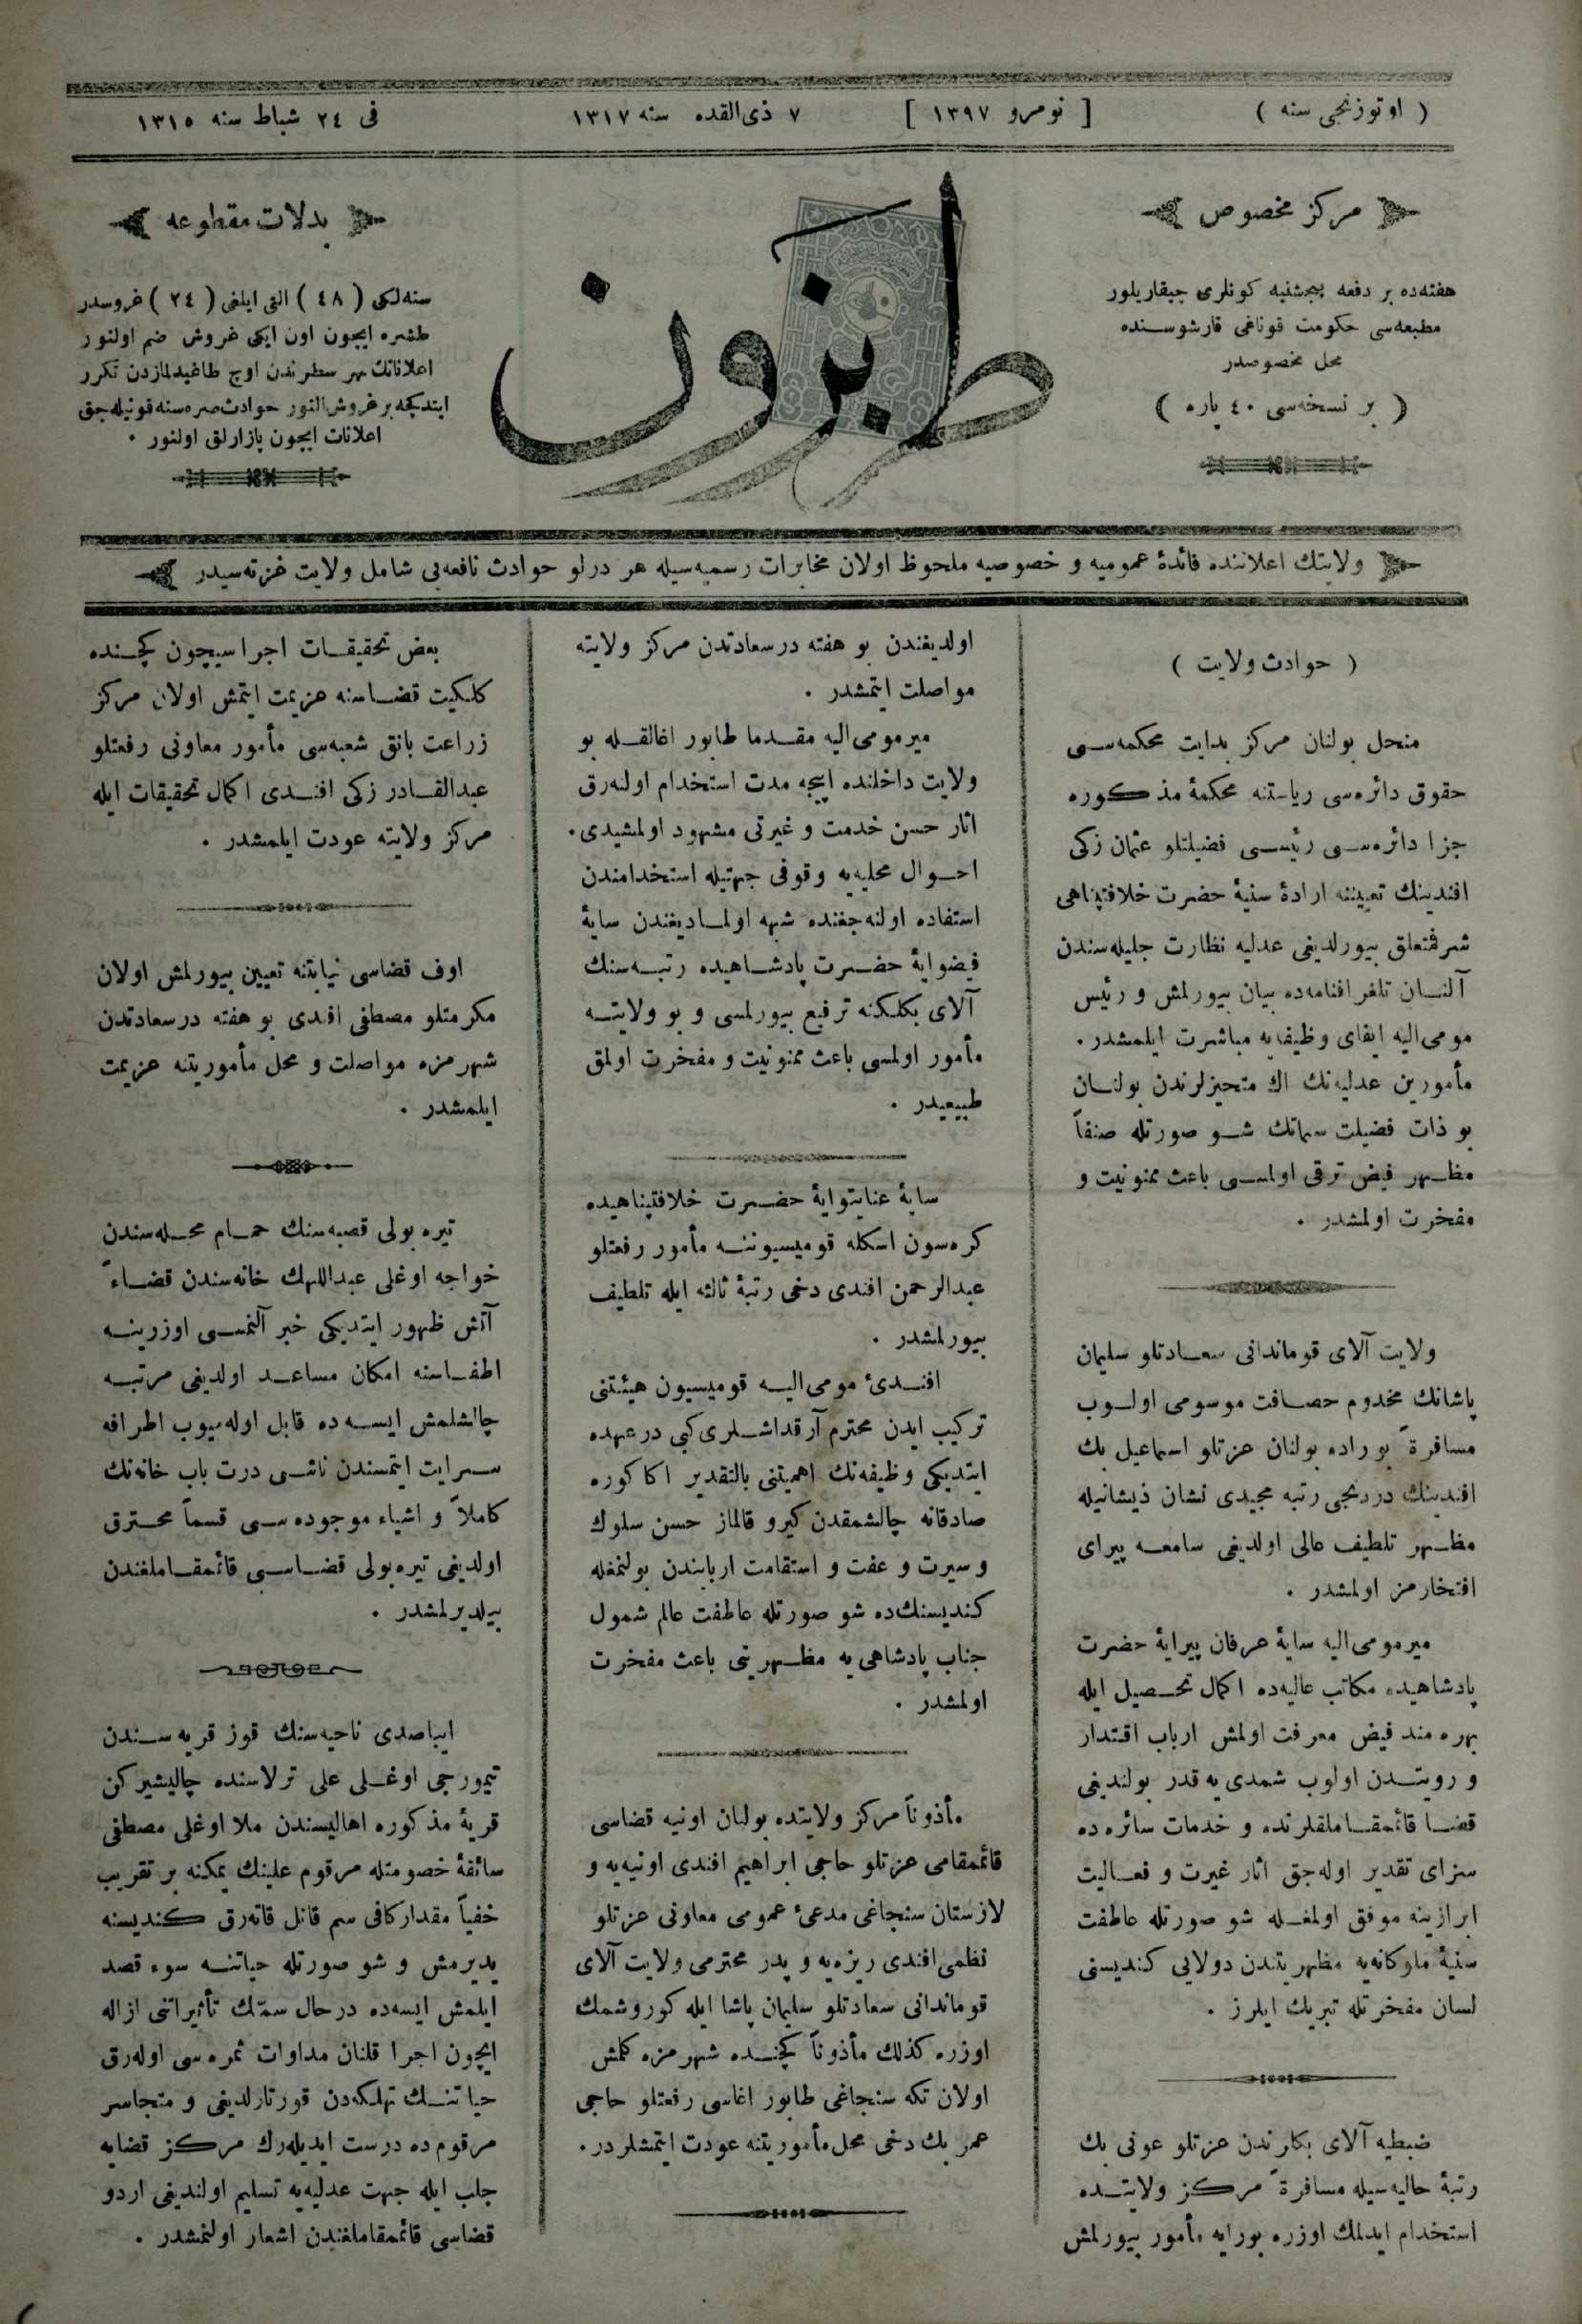 ( اوتوزنجی سنه )
[ نومرو ١٣٩٧ ]
٧ ذی القعده سنه ١٣١٧
فی ٢٤ شباط سنه ١٣١٥
مركز مخصوص
هفته‌ده بر دفعه پنجشنبه كونلری چیقاریلور
مطبعه‌سی حكومت قوناغی قارشوسنده
محل مخصوصدر
( بر نسخه‌سی ٤٠ پاره )
طربزون
بدلات مقطوعه
سنه‌لكی ( ٤٨ ) التی ایلغی ( ٢٤ ) غروشدر
طشره ایچون اون ایكی غروش ضم اولنور
اعلاناتك بهر سطرندن اوچ طاغیدلمازدن تكرر
ایتدكچه بر غروش النور حوادث صره‌سنه قونیله‌جق
اعلانات ایچون پازارلق اولنور ٠
ولایتك اعلاننده فائدهٔ عمومیه و خصوصیه ملحوظ اولان مخابرات رسمیه‌سیله هر درلو حوادث نافعه‌یی شامل ولایت غزته‌سیدر
( حوادث ولایت )
منحل بولنان مركز بدایت محكمه‌سی
حقوق دائره‌سی ریاستنه محكمهٔ مذكوره
جزا دائره‌سی رئیسی فضیلتلو عثمان زكی
افندینك تعییننه ارادهٔ سنیهٔ حضرت خلافتپناهی
شرفتعلق بیورلدیغی عدلیه نظارت جلیله‌سندن
آلنان تلغرافنامه‌ده بیان بیورلمش و رئیس
مومی‌الیه ایفای وظیفه‌یه مباشرت ایلمشدر ٠
مأمورین عدلیه‌نك اك متحیزلرندن بولنان
بو ذات فضیلت سماتك شو صورتله صنفاً
مظهر فیض ترقی اولمسی باعث ممنونیت و
مفخرت اولمشدر ٠
ولایت آلای قوماندانی سعادتلو سلیمان
پاشانك مخدوم حصافت موسومی اولوب
مسافرةً بوراده بولنان عزتلو اسماعیل بك
افندینك دردنجی رتبه مجیدی نشان ذیشانیله
مظهر تلطیف عالی اولدیغی سامعه پیرای
افتخارمز اولمشدر ٠
میر مومی‌الیه سایهٔ عرفان پیرایهٔ حضرت
پادشاهیده مكاتب عالیه‌ده اكمال تحصیل ایله
بهره‌مند فیض معرفت اولمش ارباب اقتدار
و رویتدن اولوب شمدی‌یه قدر بولندیغی
قضا قائمقاملقلرنده و خدمات سائره‌ده
سزای تقدیر اوله‌جق اثار غیرت و فعالیت
ابرازینه موفق اولمغله شو صورتله عاطفت
سنیهٔ ملوكانه‌یه مظهریتدن دولایی كندیسنی
لسان مفخرتله تبریك ایلرز ٠
ضبطیه آلای بكلرندن عزتلو عونی بك
رتبهٔ حالیه‌سیله مسافرةً مركز ولایتده
استخدام ایدلمك اوزره بورایه مأمور بیورلمش
اولدیغندن بو هفته درسعادتدن مركز ولایته
مواصلت ایتمشدر ٠
میر مومی‌الیه مقدما طابور اغالقله بو
ولایت داخلنده ایبجه مدت استخدام اولنه‌رق
اثار حسن خدمت و غیرتی مشهود اولمشیدی ٠
احوال محلیه‌یه وقوفی جهتیله استخدامندن
استفاده اولنه‌جغنده شبهه اولمادیغندن سایهٔ
فیضوایهٔ حضرت پادشاهیده رتبه‌سنك
آلای بكلكنه ترفیع بیورلمسی و بو ولایته
مأمور اولمسی باعث ممنونیت و مفخرت اولمق
طبیعیدر ٠
سایهٔ عنایتوایهٔ حضرت خلافتپناهیده
كره‌سون اسكله قومیسیوننه مأمور رفعتلو
عبدالرحمن افندی دخی رتبهٔ ثالثه ایله تلطیف
بیورلمشدر ٠
افندیٔ مومی‌الیه قومیسیون هیئتنی
تركیب ایدن محترم آرقداشلری كبی درعهده
ایتدیكی وظیفه‌نك اهمیتنی بالتقدیر اكا كوره
صادقانه چالشمقدن كیرو قالماز حسن سلوك
و سیرت و عفت و استقامت اربابندن بولنمغله
كندیسنك‌ده شو صورتله عاطفت عالم شمول
جناب پادشاهی‌یه مظهریتی باعث مفخرت
اولمشدر ٠
مأذوناً مركز ولایتده بولنان اونیه قضاسی
قائمقامی عزتلو حاجی ابراهیم افندی اونیه‌یه و
لازستان سنجاغی مدعیٔ عمومی معاونی عزتلو
نظمی افندی ریزه‌یه و پدر محترمی ولایت آلای
قوماندانی سعادتلو سلیمان پاشا ایله كوروشمك
اوزره كذلك مأذوناً كچنده شهرمزه كلمش
اولان تكه سنجاغی طابور اغاسی رفعتلو حاجی
عمر بك دخی محل مأموریتنه عودت ایتمشلردر ٠
بعض تحقیقات اجراسیچون كچنده
كلكیت قضاسنه عزیمت ایتمش اولان مركز
زراعت بانق شعبه‌سی مأمور معاونی رفعتلو
عبدالقادر زكی افندی اكمال تحقیقات ایله
مركز ولایته عودت ایلمشدر ٠
اوف قضاسی نیابتنه تعیین بیورلمش اولان
مكرمتلو مصطفی افندی بو هفته درسعادتدن
شهرمزه مواصلت و محل مأموریتنه عزیمت
ایلمشدر ٠
تیره‌بولی قصبه‌سنك حمام محله‌سندن
خواجه اوغلی عبداللهك خانه‌سندن قضاءً
آتش ظهور ایتدیكی خبر آلنمسی اوزرینه
اطفاسنه امكان مساعد اولدیغی مرتبه
چالشلمش ایسه‌ده قابل اوله‌میوب اطرافه
سرایت ایتمسندن ناشی درت باب خانه‌نك
كاملاً و اشیاء موجوده‌سی قسماً محترق
اولدیغی تیره‌بولی قضاسی قائمقاملغندن
بیلدیرلمشدر ٠
ایباصدی ناحیه‌سنك قوز قریه‌سندن
تیمورجی اوغلی علی ترلاسنده چالیشیركن
قریهٔ مذكوره اهالیسندن ملا اوغلی مصطفی
سائقهٔ خصومتله مرقوم علینك یمكنه بر تقریب
خفیاً مقدار كافی سم قاتل قاته‌رق كندیسنه
یدیرمش و شو صورتله حیاتنه سوء قصد
ایلمش ایسه‌ده درحال سمّك تأثیراتنی ازاله
ایچون اجرا قلنان مداوات ثمره‌سی اوله‌رق
حیاتنك تهلكه‌دن قورتارلدیغی و متجاسر
مرقوم‌ده درست ایدیله‌رك مركز قضایه
جلب ایله جهت عدلیه‌یه تسلیم اولندیغی اردو
قضاسی قائمقاملغندن اشعار اولنمشدر ٠